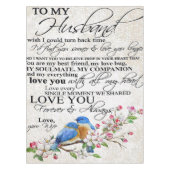 TO MY
Husband
wish I could turn back time
I'd find you sooner & love you longer
I WANT YOU TO BELIEVE DEEP IN YOUR HEART THAT
you are my best friend, my love bug,
MY SOULMATE, MY COMPANION
and my everything
love you with all my heart
LOVE EVERY
SINGLE MOMENT WE SHARED
LOVE YOU
Forever & Always
Love,
your Wife